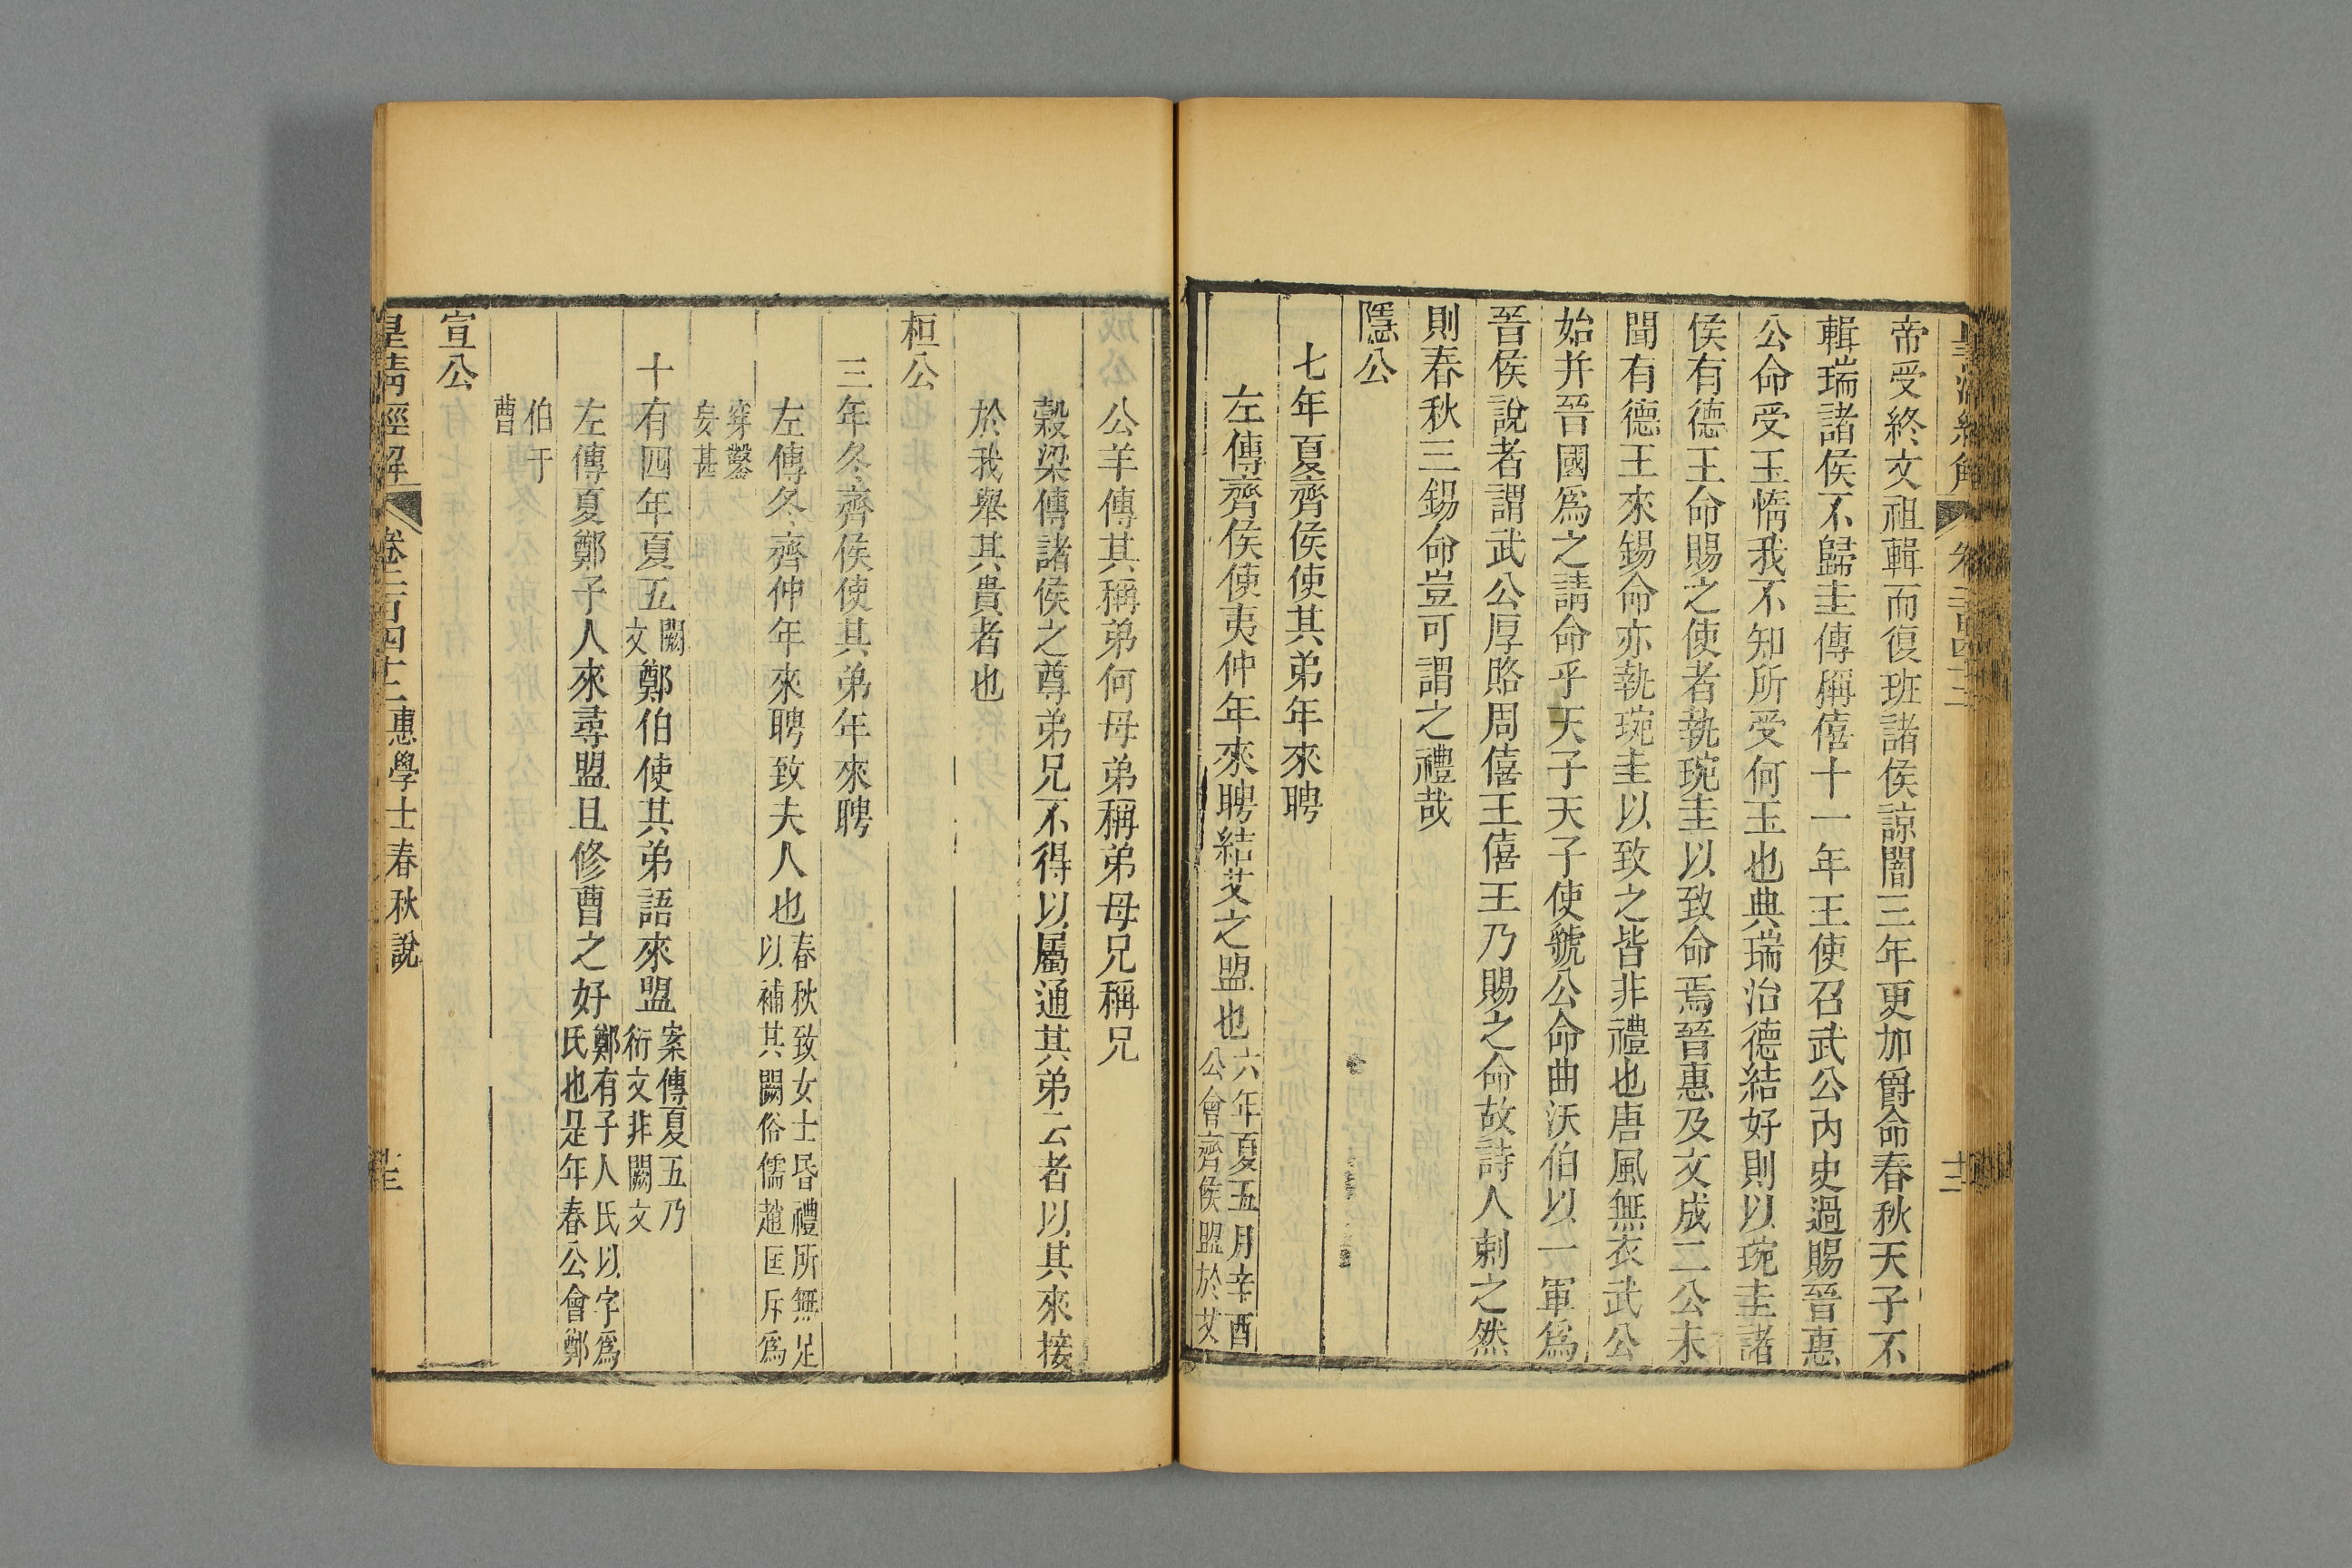 皇清經解 卷二百四十二 十二
帝受終文祖輯而復班諸侯諒闇三年更加爵命春秋天子不
輯瑞諸侯不歸圭傳稱僖十一年王使召武公內史過賜晉惠
公命受玉惰我不知所受何玉也典瑞治德結好則以琬圭諸
侯有德王命賜之使者執琬圭以致命焉晉惠及文成二公未
聞有德王來錫命亦執琬圭以致之皆非禮也唐風無衣武公
始并晉國爲之請命乎天子天子使虢公命曲沃伯以一軍爲
晉侯說者謂武公厚賂周僖王僖王乃賜之命故詩人刺之然
則春秋三錫命豈可謂之禮哉
隱公
七年夏齊侯使其弟年來聘
左傳齊侯使夷仲年來聘結艾之盟也六年夏五月辛酉公會齊侯盟於艾
公羊傳其稱弟何母弟稱弟母兄稱兄
穀梁傳諸侯之尊弟兄不得以屬通其弟云者以其來接
於我舉其貴者也
桓公
三年冬齊侯使其弟年來聘
左傳冬齊仲年來聘致夫人也春秋致女士昏禮所無足以補其闕俗儒趙匡斥爲
穿鑿妄甚
十有四年夏五闕文鄭伯使其弟語來盟案傳夏五乃衍文非闕文
左傳夏鄭子人來尋盟且修曹之好鄭有子人氏以字爲氏也是年春公會鄭
伯于曹
宣公
皇清經解 卷二百四十二 惠學士春秋說